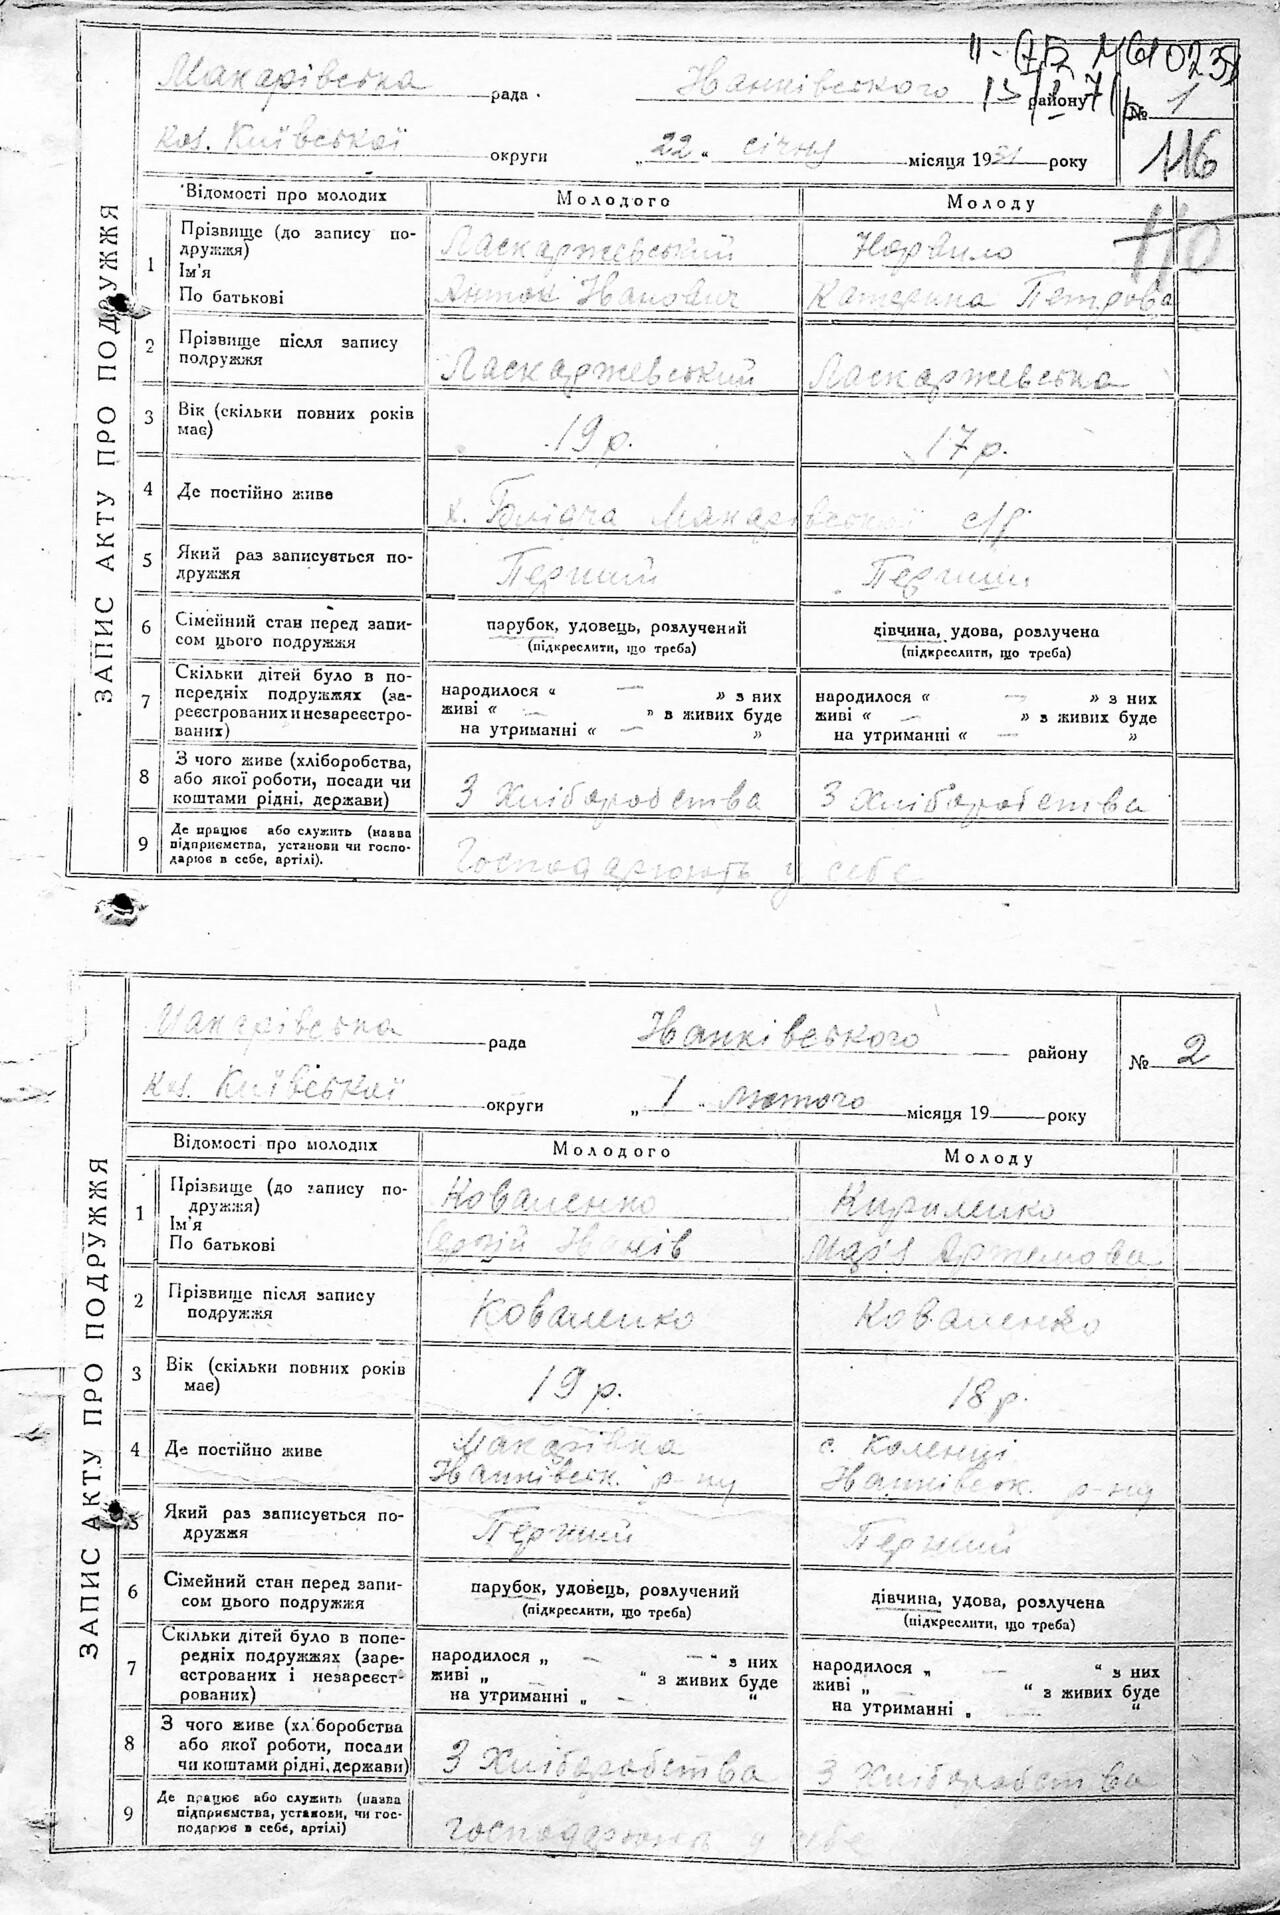 ЗАПИС АКТУ ПРО ПОДРУЖЖЯ
Макарівська рада Іванківського району № 1
Київської округи „22“ січня місяця 1931 року
116
110
Відомості про молодих Молодого Молоду
1 Прізвище (до запису подружжя) Ласкаржевський
Ім'я
По батькові Антон Іванович Катерина Петрова
2 Прізвище після запису подружжя Ласкаржевський Ласкаржевська
3 Вік (скільки повних років має) 19 р. 17 р.
4 Де постійно живе х. Макарівської с/р.
5 Який раз записується подружжя Перший Перший
6 Сімейний стан перед записом цього подружжя парубок, удовець, розлучений (підкреслити, що треба) дівчина, удова, розлучена (підкреслити, що треба)
7 Скільки дітей було в попередніх подружжях (зареєстрованих и незареєстрованих) народилося « — » з них живі « — » в живих буде на утриманні « — » народилося « — » з них живі « — » з живих буде на утриманні « — »
8 З чого живе (хліборобства, або якої роботи, посади чи коштами рідні, держави) З Хліборобства З Хліборобства
9 Де працює або служить (назва підприємства, установи чи господарює в себе, артілі). Господарюють у себе
ЗАПИС АКТУ ПРО ПОДРУЖЖЯ
Макарівська рада Іванківського району № 2
Київської округи „1“ лютого місяця 19 року
Відомості про молодих Молодого Молоду
1 Прізвище (до запису подружжя) Коваленко Кириленко
Ім'я
По батькові Сергій Іванів Мар'я Артемова
2 Прізвище після запису подружжя Коваленко Коваленко
3 Вік (скільки повних років має) 19 р. 18 р.
4 Де постійно живе Макарівка Іванківськ. р-ну с. Коленці Іванківськ. р-ну
5 Який раз записується подружжя Перший Перший
6 Сімейний стан перед записом цього подружжя парубок, удовець, розлучений (підкреслити, що треба) дівчина, удова, розлучена (підкреслити, що треба)
7 Скільки дітей було в попередніх подружжях (зареєстрованих і незареєстрованих) народилося „ — “ з них живі „ — “ з живих буде на утриманні „ — “ народилося „ — “ з них живі „ — “ з живих буде на утриманні „ — “
8 З чого живе (хліборобства або якої роботи, посади чи коштами рідні, держави) З Хліборобства З Хліборобства
9 Де працює або служить (назва підприємства, установи, чи господарює в себе, артілі) Господарюють у себе